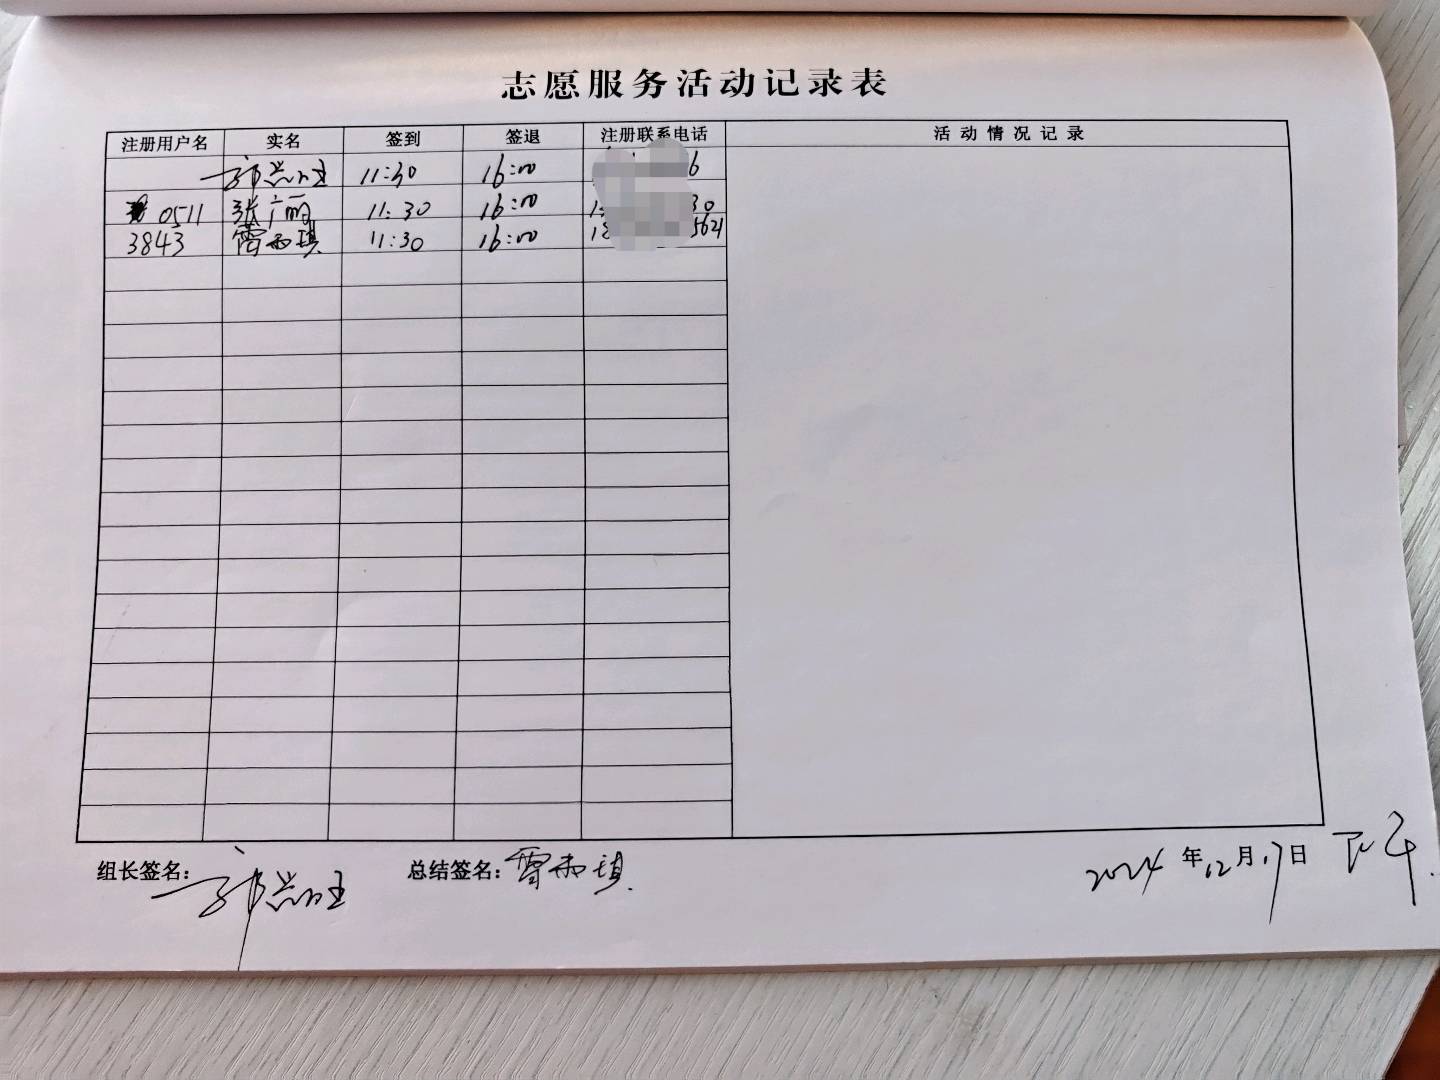 志愿服务活动记录表
注册用户名 实名 签到 签退 注册联系电话 活动情况记录
11:30 16:00 6
0511 张广丽 11:30 16:00 1 30
3843 雷雨琪 11:30 16:00 18 5621
组长签名: 总结签名: 雷雨琪 2024年12月17日 下午